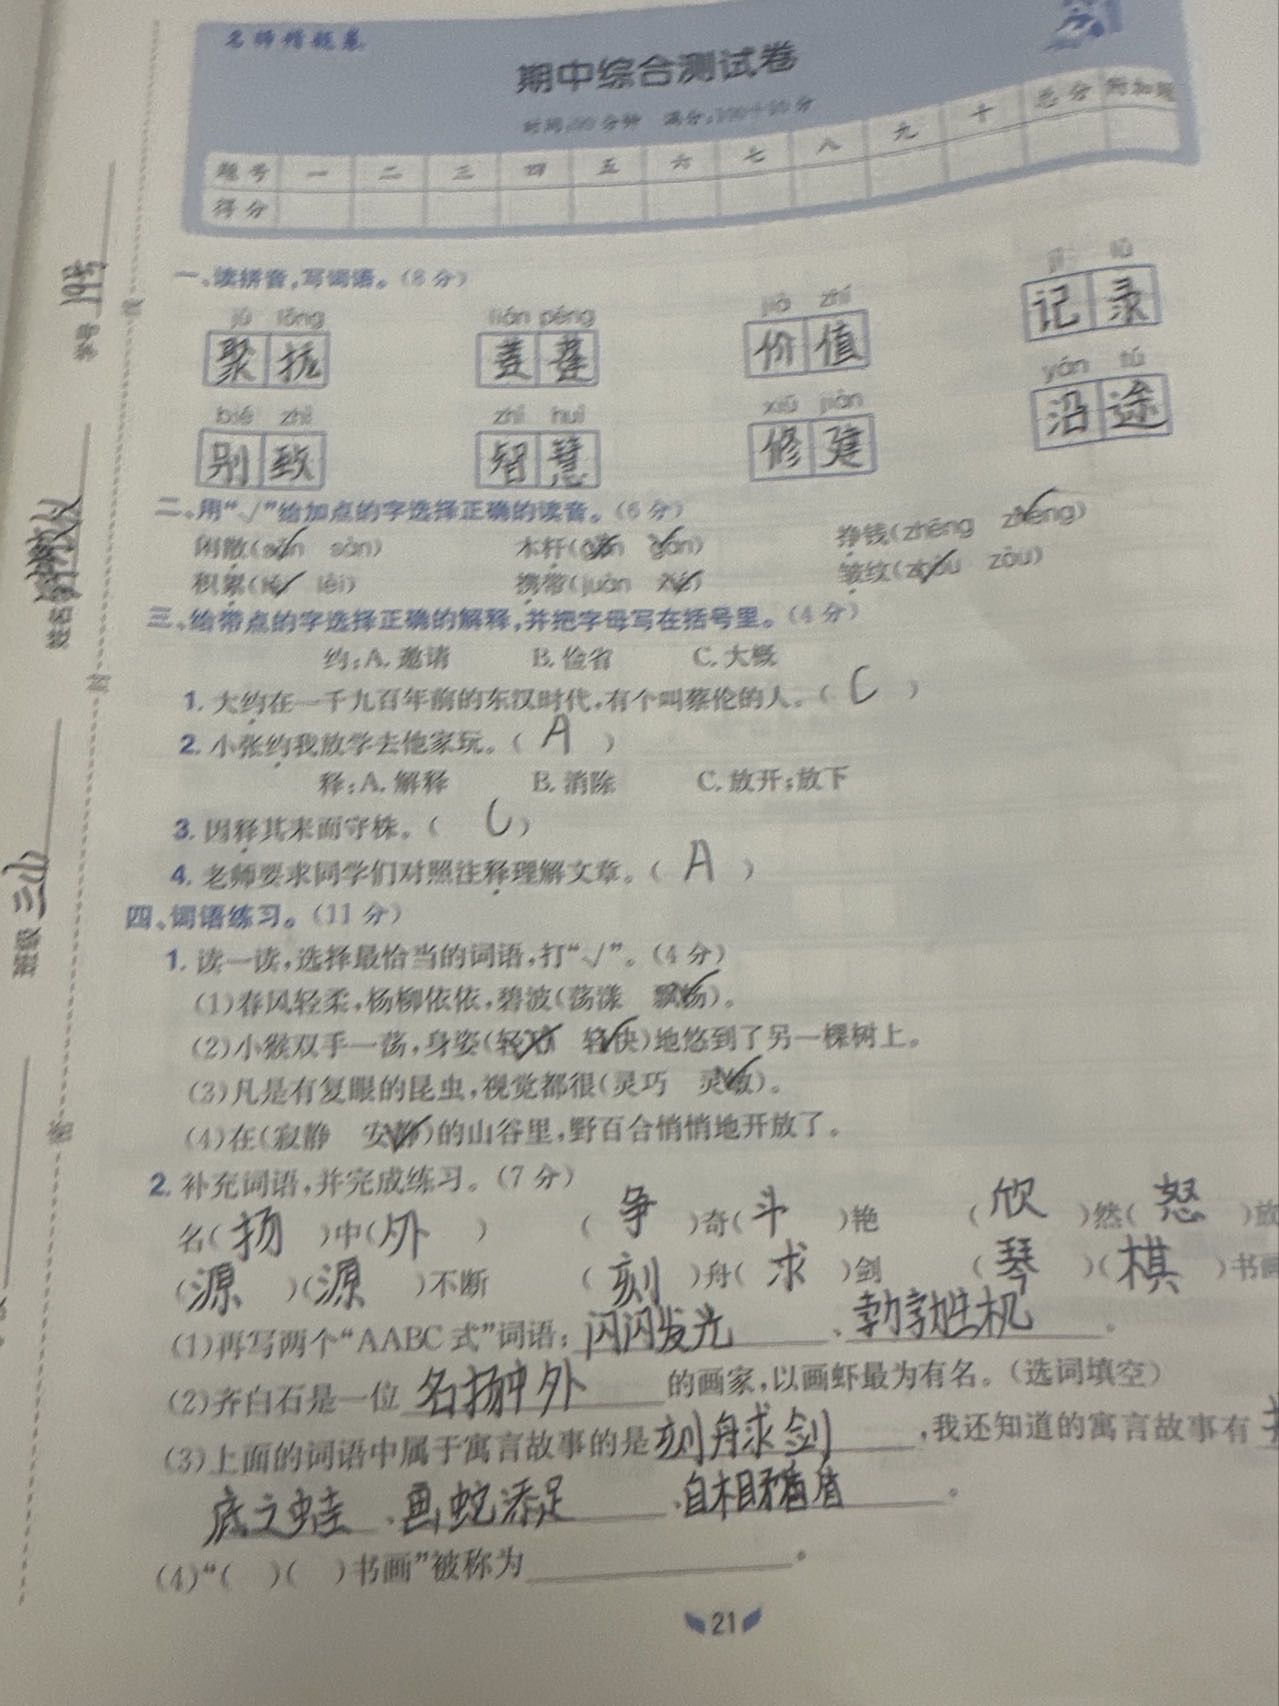 名师精题卷
期中综合测试卷
时间:90分钟 满分:100+10分
题号 一 二 三 四 五 六 七 八 九 十 总分 附加题
得分
学号 19号
班级 三山
一、读拼音,写词语。(8分)
jù lǒng lián péng jià zhí jì lù
聚 拢 莲 蓬 价 值 记 录
bié zhì zhì huì xiū jiàn yán tú
别 致 智 慧 修 建 沿 途
二、用“√”给加点的字选择正确的读音。(6分)
闲散(sǎn sàn) 木杆(gān gǎn) 挣钱(zhēng zhèng)
积累(lěi lèi) 携带(juàn xié) 皱纹(zhòu zòu)
三、给带点的字选择正确的解释,并把字母写在括号里。(4分)
约:A.邀请 B.俭省 C.大概
1. 大约在一千九百年前的东汉时代,有个叫蔡伦的人。( C )
2. 小张约我放学去他家玩。( A )
释:A.解释 B.消除 C.放开;放下
3. 因释其耒而守株。( C )
4. 老师要求同学们对照注释理解文章。( A )
四、词语练习。(11分)
1. 读一读,选择最恰当的词语,打“√”。(4分)
(1)春风轻柔,杨柳依依,碧波(荡漾 飘扬)。
(2)小猴双手一荡,身姿(轻巧 轻快)地悠到了另一棵树上。
(3)凡是有复眼的昆虫,视觉都很(灵巧 灵敏)。
(4)在(寂静 安静)的山谷里,野百合悄悄地开放了。
2. 补充词语,并完成练习。(7分)
名( 扬 )中( 外 ) ( 争 )奇( 斗 )艳 ( 欣 )然( 怒 )放
( 源 )( 源 )不断 ( 刻 )舟( 求 )剑 ( 琴 )( 棋 )书画
(1)再写两个“AABC式”词语: 闪闪发光 、 勃勃生机 。
(2)齐白石是一位 名扬中外 的画家,以画虾最为有名。(选词填空)
(3)上面的词语中属于寓言故事的是 刻舟求剑 ,我还知道的寓言故事有
底之蛙 、 画蛇添足 、 自相矛盾 。
(4)“( )( )书画”被称为 。
密 封 线
21